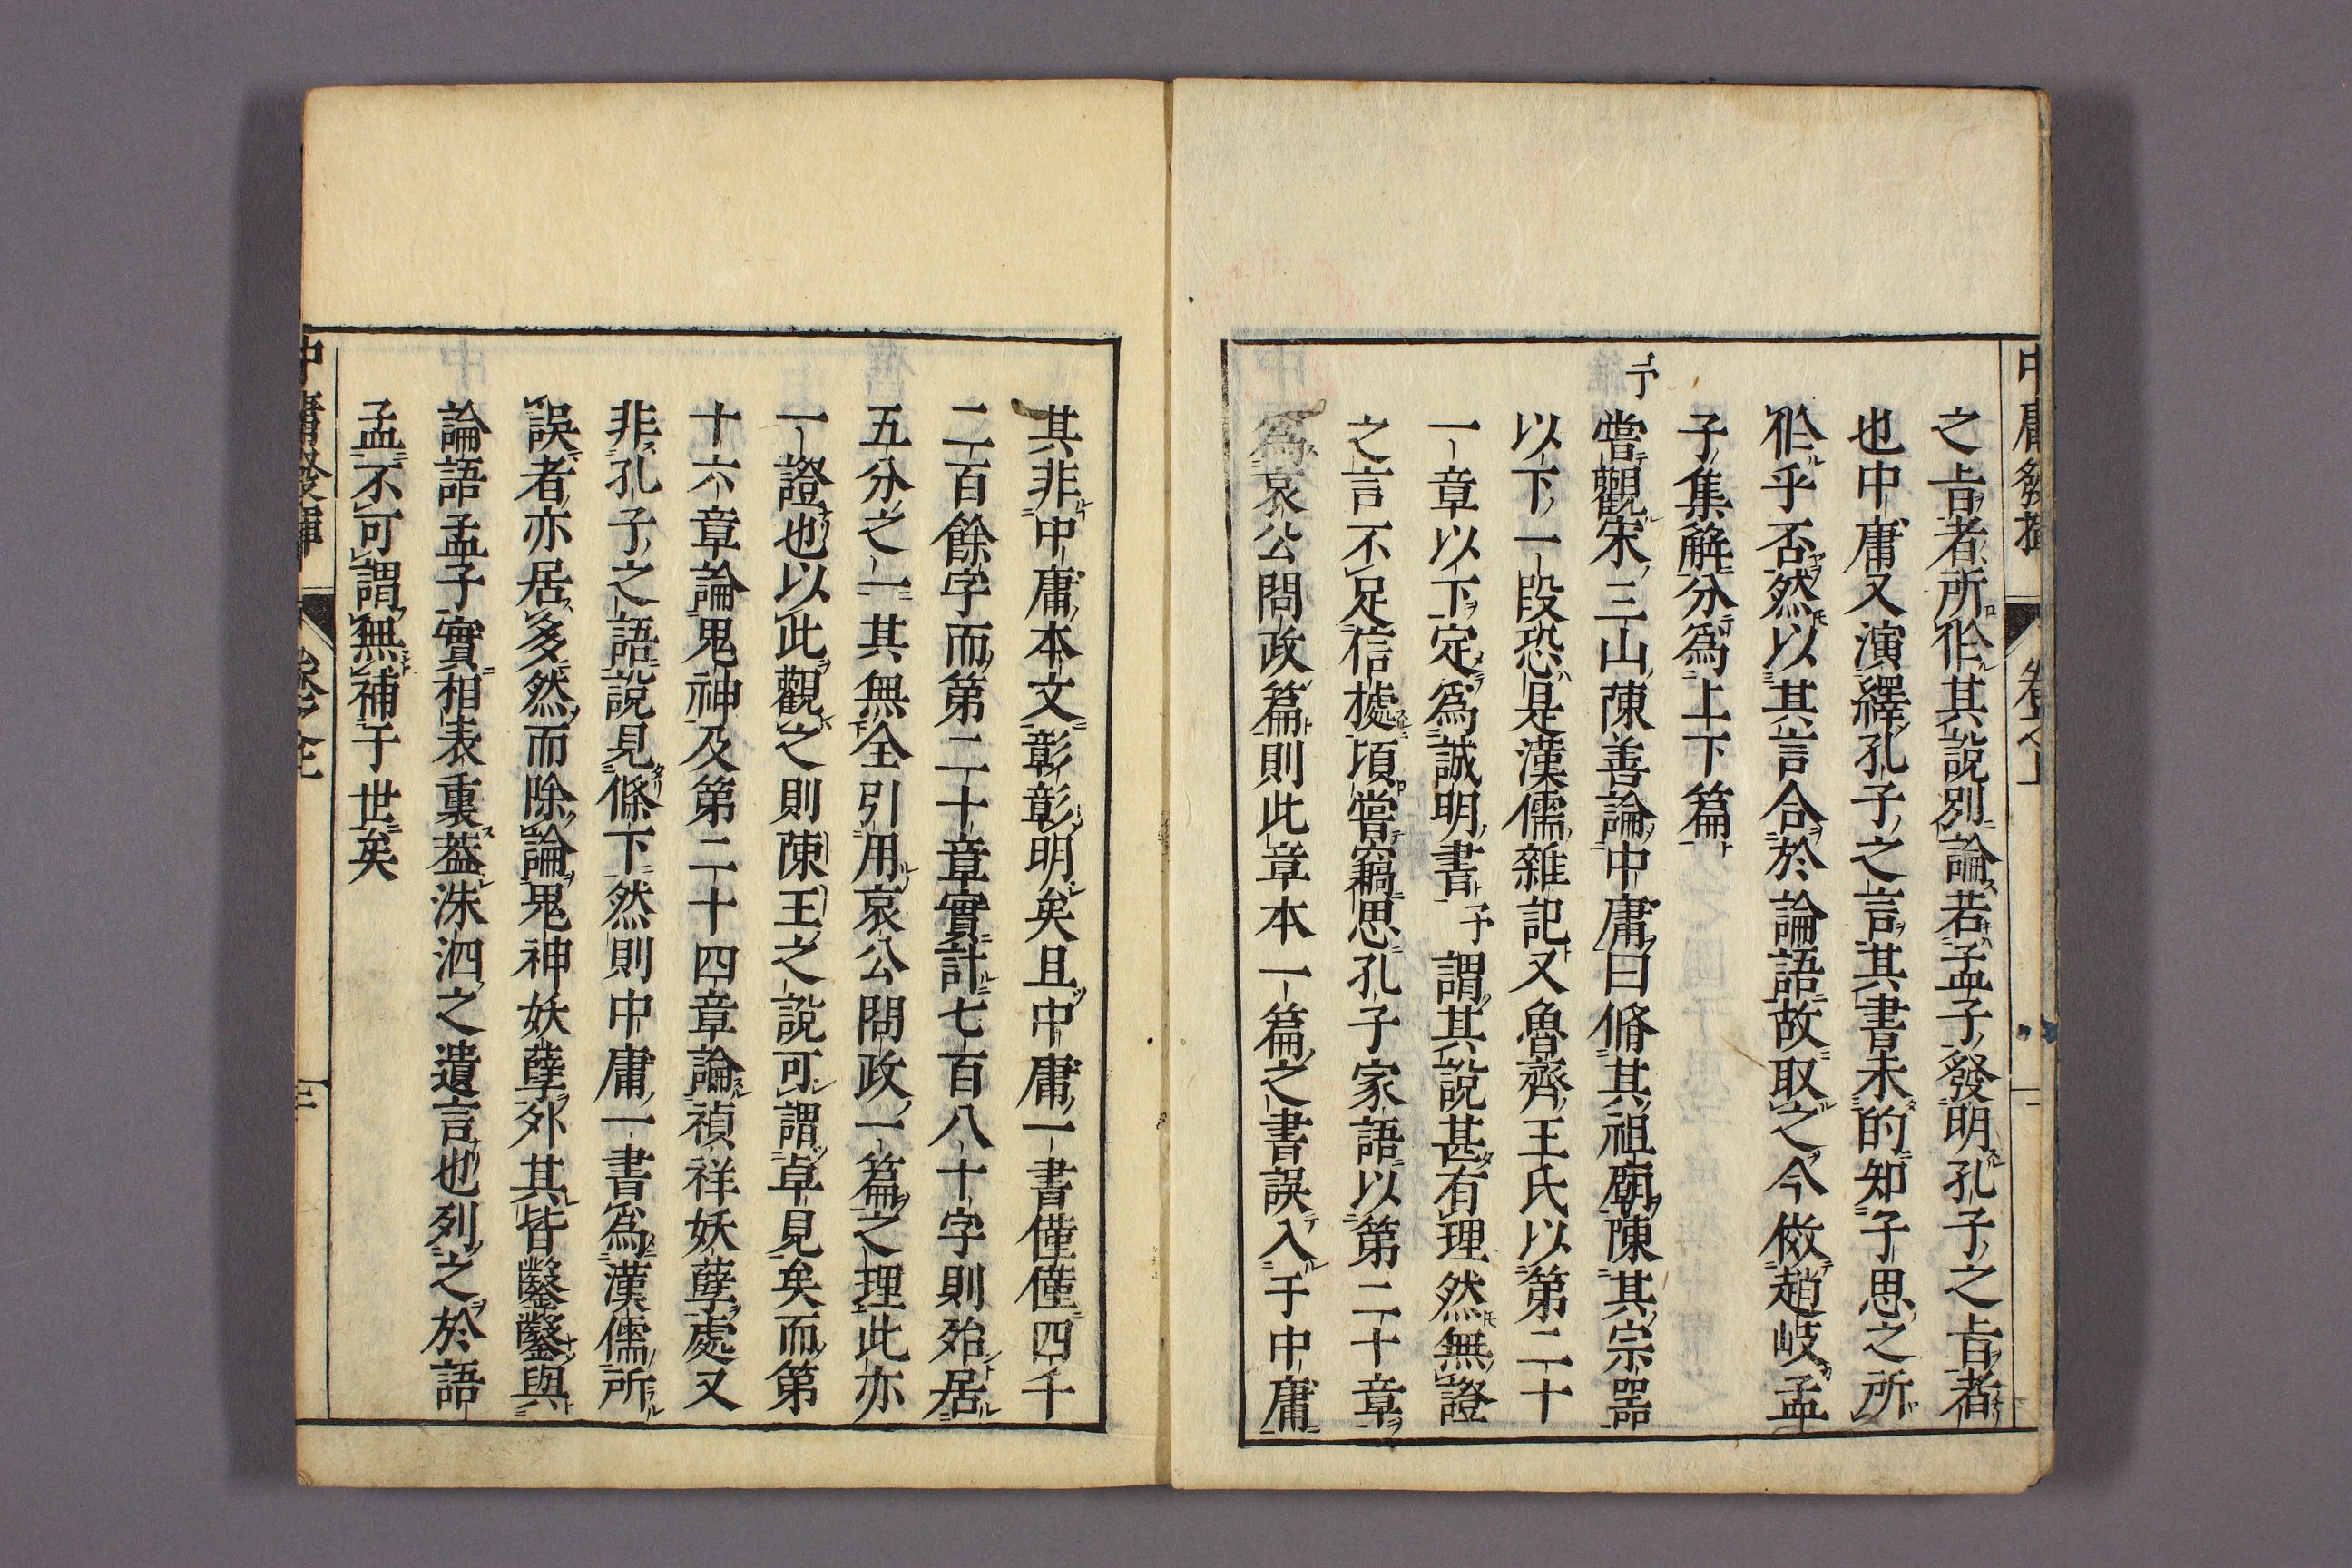 中庸發揮 卷之上
之旨者所作其說別論若孟子發明孔子之旨者
也中庸又演繹孔子之言其書未的知子思之所
作乎否然以其言合於論語故取之今倣趙岐孟
子集解分爲上下篇
予嘗觀宋三山陳善論中庸曰脩其祖廟陳其宗器
以下一段恐是漢儒雜記又魯齊王氏以第二十
一章以下定爲誠明書予謂其說甚有理然無證
之言不足信據頃嘗竊思孔子家語以第二十章
爲哀公問政篇則此章本一篇之書誤入于中庸
其非中庸本文彰彰明矣且中庸一書僅僅四千
二百餘字而第二十章實計七百八十字則殆居
五分之一其無全引用哀公問政一篇之理此亦
一證也以此觀之則陳王之說可謂卓見矣而第
十六章論鬼神及第二十四章論禎祥妖孽處又
非孔子之語說見條下然則中庸一書爲漢儒所
誤者亦居多然而除論鬼神妖孽外其皆鑿鑿與
論語孟子實相表裏葢洙泗之遺言也列之於語
孟不可謂無補于世矣
中庸發揮 卷之上 三